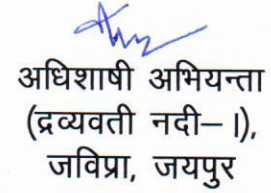 अधिशाषी अभियन्ता
(द्रव्यवती नदी– I),
जविप्रा, जयपुर